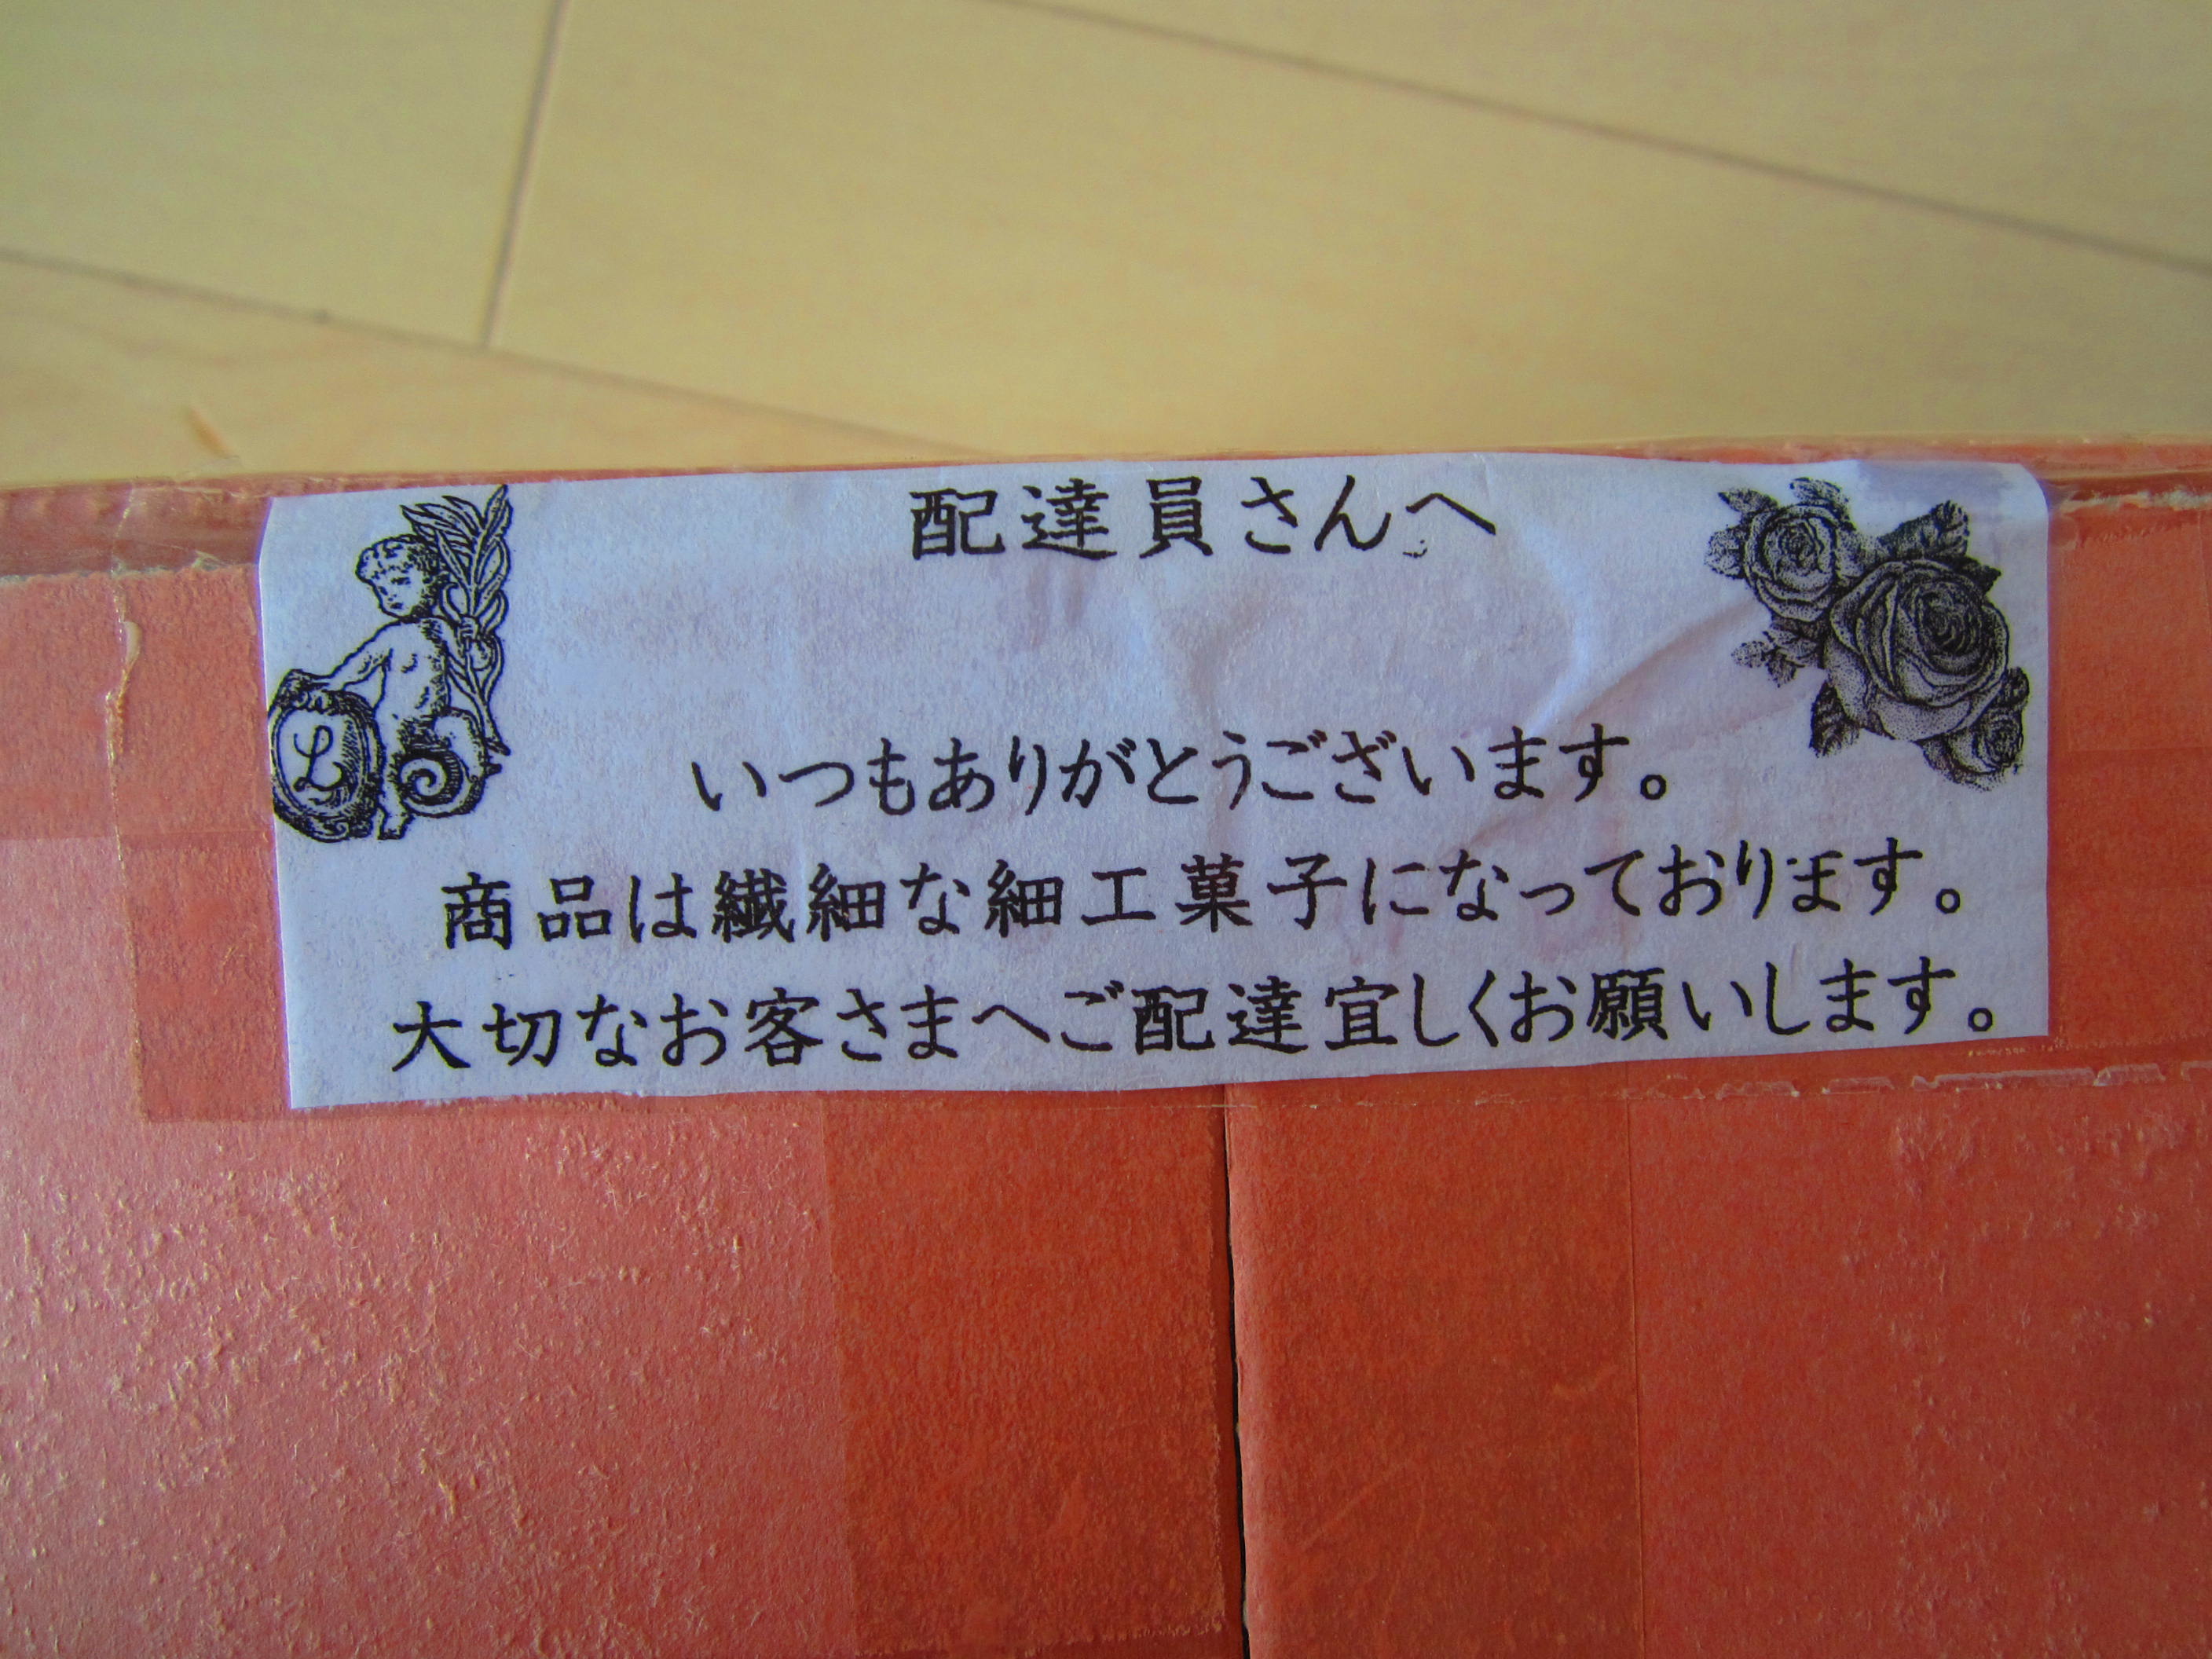 配達員さんへ
いつもありがとうございます。
商品は繊細な細工菓子になっております。
大切なお客さまへご配達宜しくお願いします。
L